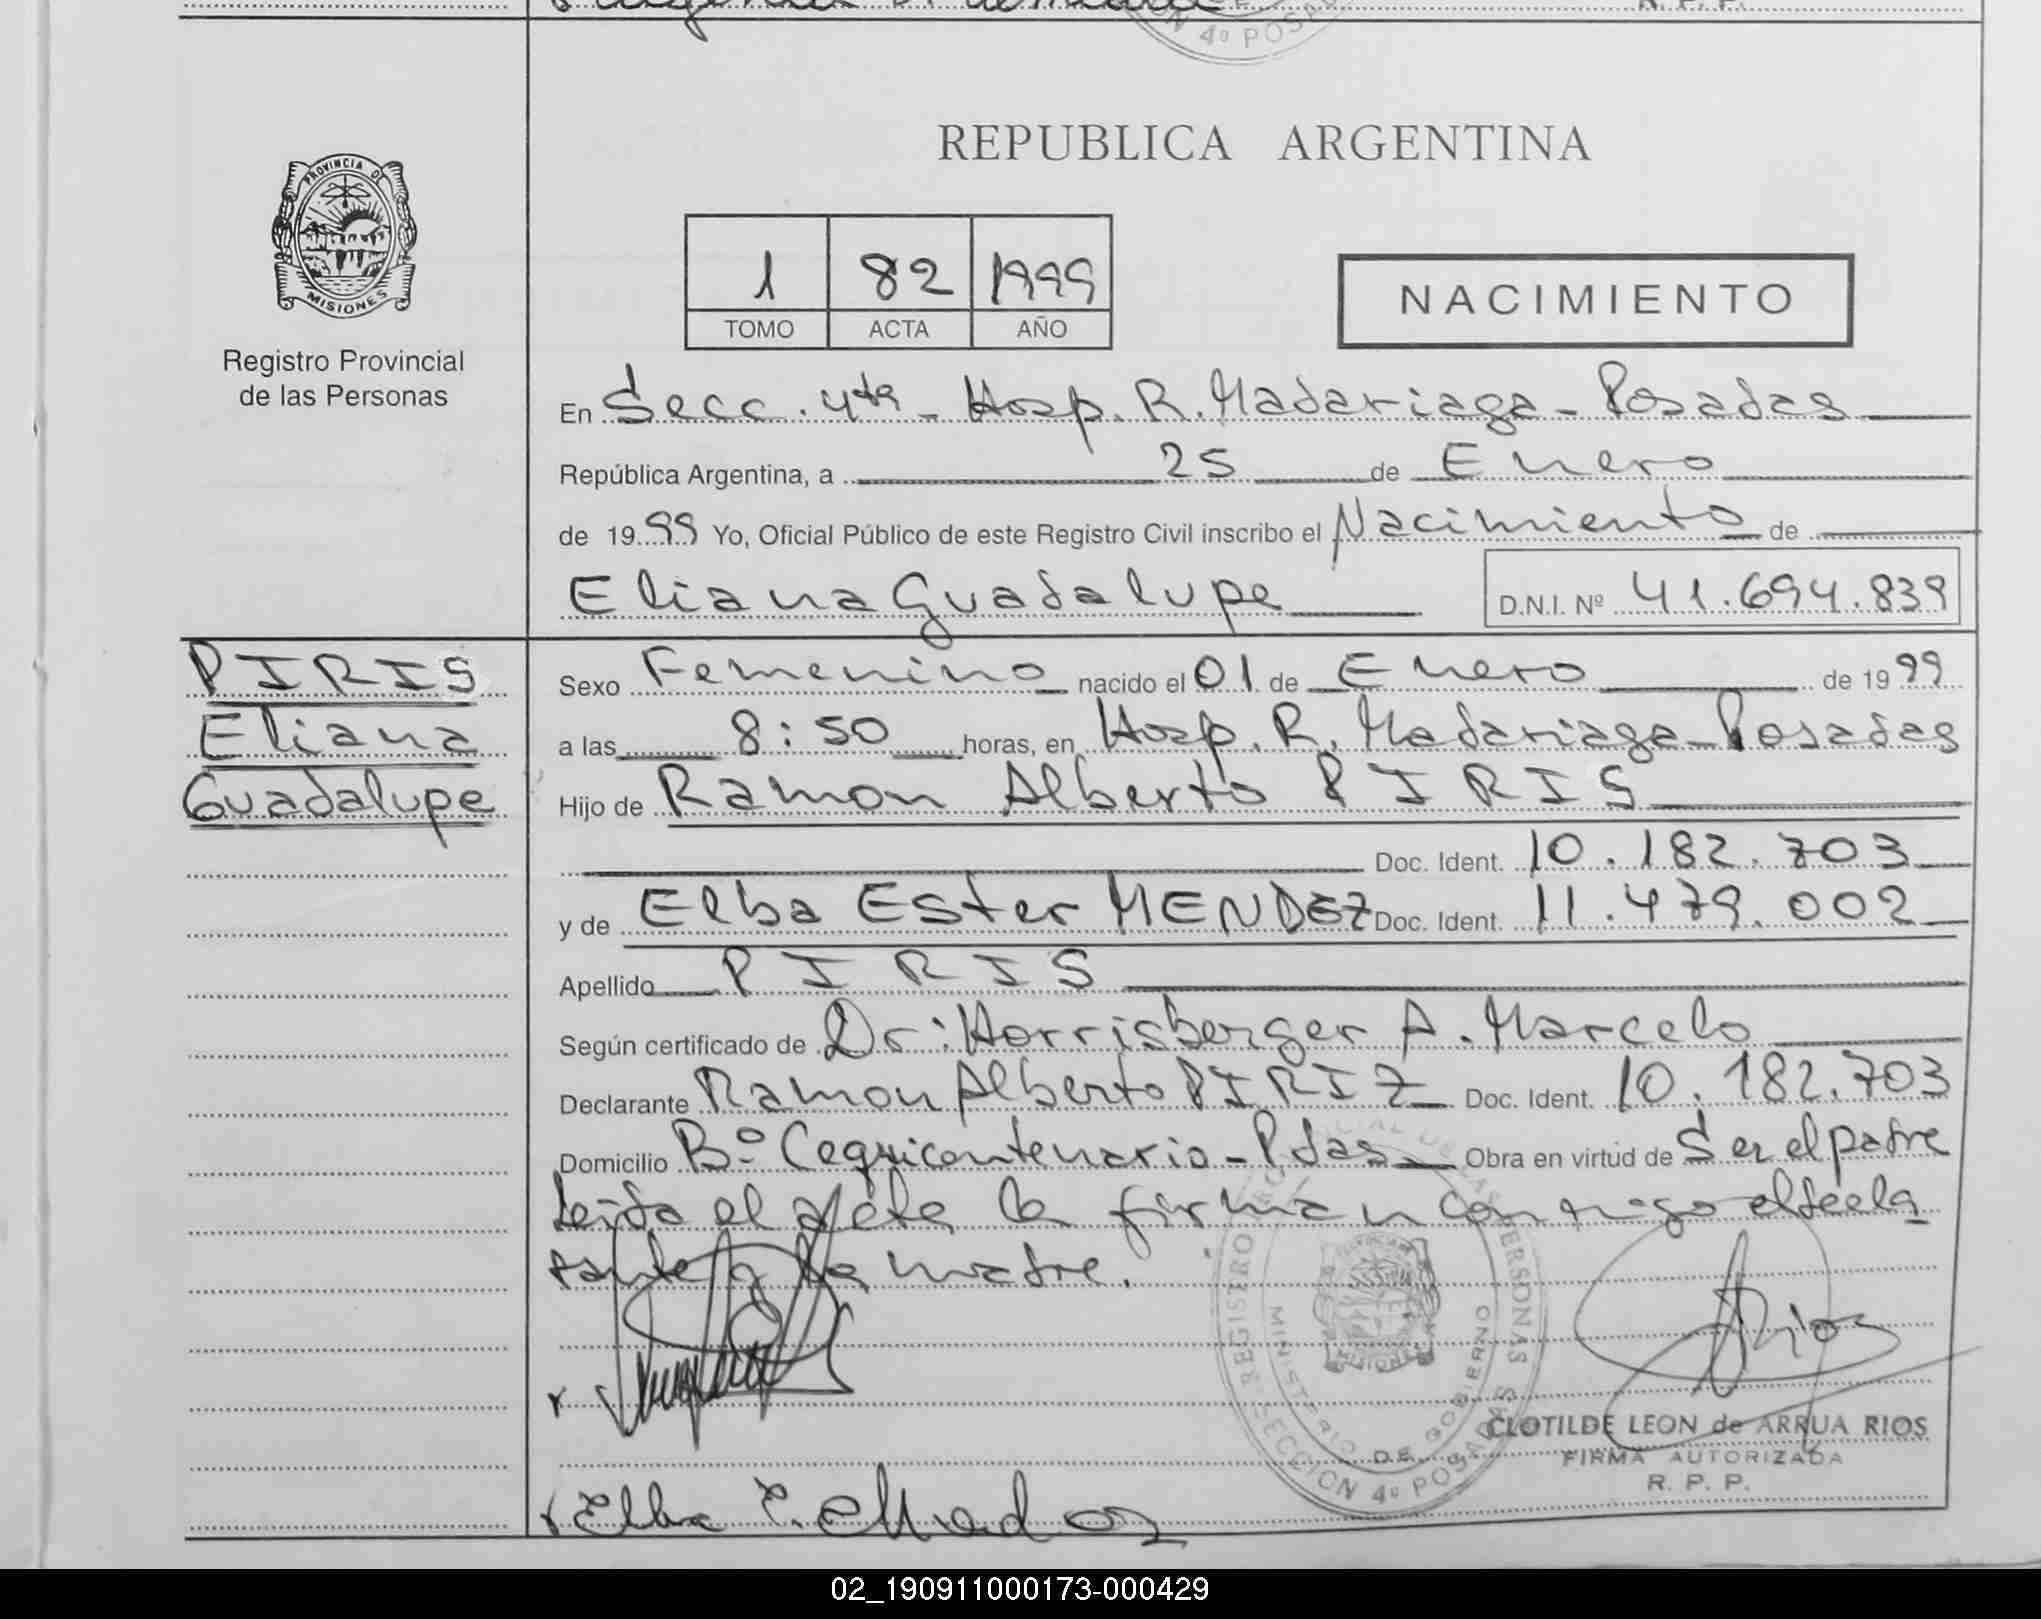 R. P. P.
4º POSADAS
REPUBLICA ARGENTINA
PROVINCIA DE
MISIONES
Registro Provincial
de las Personas
1 82 1999
TOMO ACTA AÑO
NACIMIENTO
En Secc. 4ta - Hosp. R. Madariaga - Posadas
República Argentina, a 25 de Enero
de 1999 Yo, Oficial Público de este Registro Civil inscribo el Nacimiento de
Eliana Guadalupe D.N.I. Nº 41.694.839
PIRIS
Eliana
Guadalupe
Sexo Femenino nacido el 01 de Enero de 1999
a las 8:50 horas, en Hosp. R. Madariaga - Posadas
Hijo de Ramon Alberto PIRIS
Doc. Ident. 10.182.703
y de Elba Ester MENDEZ Doc. Ident. 11.479.002
Apellido PIRIS
Según certificado de Dr: Horrisberger A. Marcelo
Declarante Ramon Alberto PIRIZ Doc. Ident. 10.182.703
Domicilio Bº Ceqricentenario - Pdas Obra en virtud de Ser el padre
Leida el acta la firman conmigo el decla
rante y la madre.
REGISTRO PROVINCIAL DE LAS PERSONAS
MINISTERIO DE GOBIERNO
SECCION 4º POSADAS
MISIONES
Rios
CLOTILDE LEON de ARRUA RIOS
FIRMA AUTORIZADA
R. P. P.
Elba E.
02_190911000173-000429